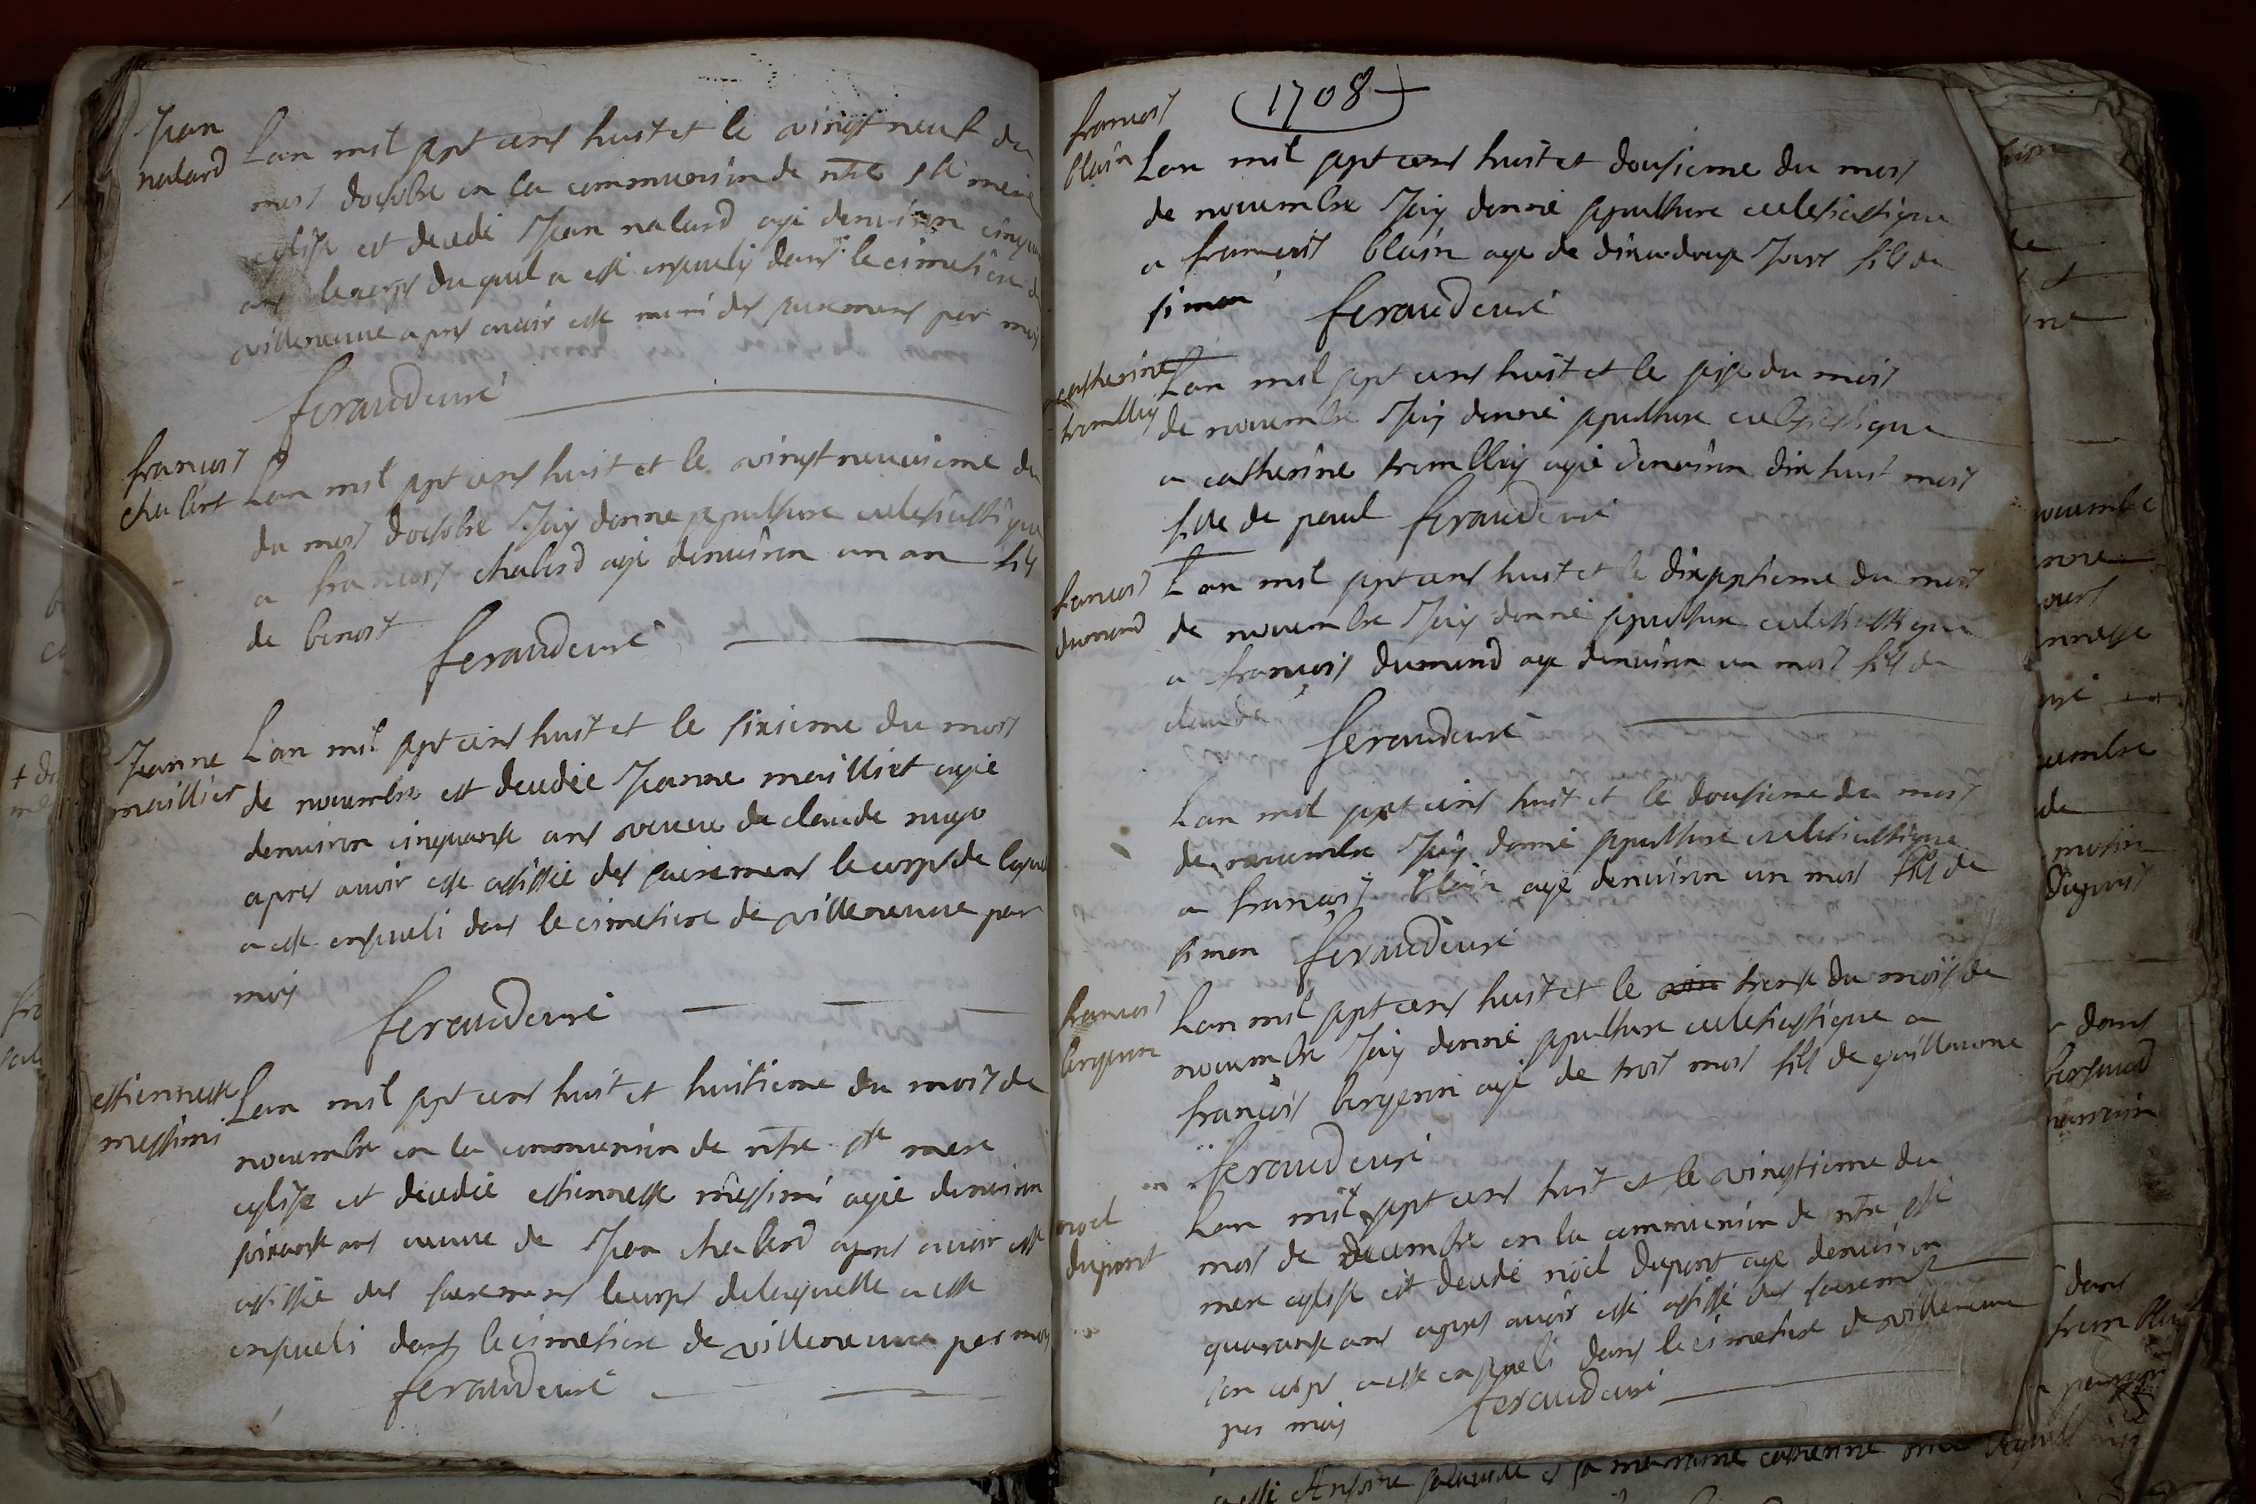 Jean
nalard
Lan mil sept cens huit et le vingt neuf du
mois doctobre en la communion de ntre ste mere
eglise est decede Jean nalard agé denviron cinqua
ans le corps du quel a esté enseveli dans le cimetiere de
villeneuve apres avoir esté muni des sacremens par moy
feraud curé
francois
chalard
Lan mil sept cens huit et le vingt neuvieme du
du mois doctobre Jay donne sepulture ecclesiastique
a francois chalard agé denviron un an fils
de benoit
feraud curé
Jeanne
maillier
Lan mil sept cens huit et le sixieme du mois
de novembre est decedée Jeanne mailliet agée
denviron cinquante ans veuve de claude
apres avoir esté assistée des sacremens le corps de laquel
a esté enseveli dans le cimetiere de villeneuve par
moy
feraud curé
estiennette
messimi
Lan mil sept cens huit et huitieme du mois de
novembre en la communion de ntre ste mere
eglise est decedée estiennette messimi agée denviron
soixante ans veuve de Jean chalard apres avoir esté
assistée des sacremens le corps de laquelle a esté
enseveli dans le cimetiere de villeneuve par moy
feraud curé
1708
francois
blain
Lan mil sept cens huit et dousieme du mois
de novembre Jay donné sepulture ecclesiastique
a francois blain agé de jours fils de
simon
feraud curé
catherine
trembllay
Lan mil sept cens huit et le seise du mois
de novembre Jay donné sepulture ecclesiastique
a catherine trembllay agée denviron dix huit mois
fille de paul feraud curé
francois
dumond
Lan mil sept cens huit et le dixseptieme du mois
de novembre Jay donné sepulture ecclesiastique
a francois dumond agé denviron un mois fils de
claude
feraud curé
Lan mil sept cens huit et le dousieme du mois
de novembre Jay donné sepulture ecclesiastique
a francois blain agé denviron un mois fils de
simon feraud curé
francois
bergeron
Lan mil sept cens huit et le trente du mois de
novembre Jay donné sepulture ecclesiastique a
francois bergeron agé de trois mois fils de guillaume
feraud curé
noel
dupont
Lan mil sept cens huit et le vingtieme du
mois de decembre en la communion de ntre ste
mere eglise est decedé noel dupont agé denviron
quarante ans apres avoir esté assisté des sacremt
son corps a esté enseveli dans le cimetiere de villeneuve
par moy
feraud curé